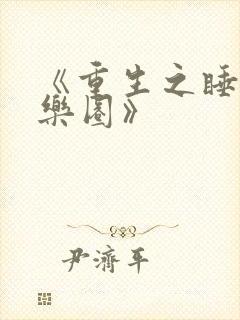 《重生之睡
樂園》
尹濟平